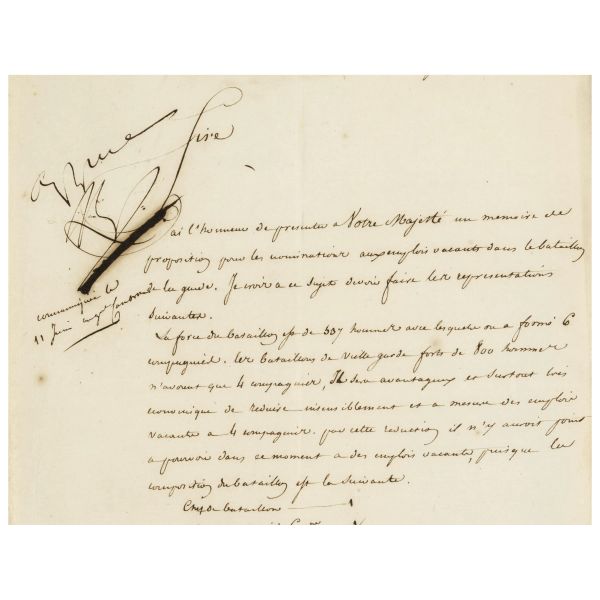 Sire
J'ai l'honneur de presenter a Votre Majesté un memoire de
proposition pour les nominations aux emplois vacants dans le bataillon
de la garde. Je crois a ce sujet devoir faire les representations
suivantes.
La force du bataillon est de 507 hommes avec lesquels on a formé 6
compagnies. les bataillons de vielle garde forts de 800 hommes
n'avoient que 4 compagnies, Il sera avantageux et surtout très
economique de reduire insensiblement et a mesure des emplois
vacants a 4 compagnies. par cette reduction il n'y auroit point
a pourvoir dans ce moment a des emplois vacants, puisque la
composition du bataillon est la suivante.
Chefs de bataillon 1
communiqué le
11 Juin